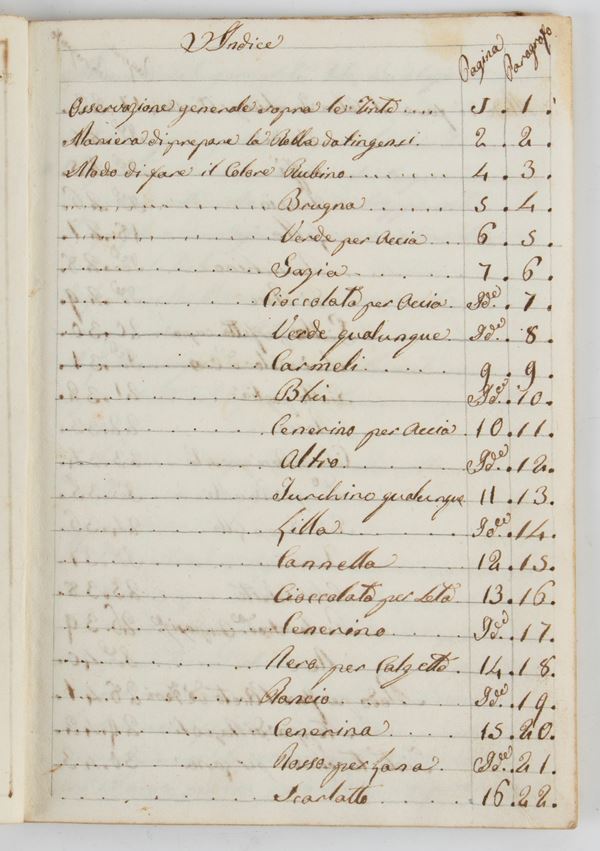 Indice
Pagina Paragrafo
Osservazione generale sopra le Tinte .... 1 . 1 .
Maniera di prepare la Robba da tingersi . 2 . 2 .
Modo di fare il Colore Rubino ....... 4 . 3 .
Brugna ...... 5 . 4 .
Verde per Accia .. 6 . 5 .
Gazia ..... 7 . 6 .
Cioccolata per Accia . Ide . 7 .
Verde qualunque Ide . 8 .
Carmeli .... 9 . 9 .
Bleù ..... Ide . 10 .
Cenerino per Accia 10 . 11 .
Altro ..... Ide . 12 .
Turchino qualunque 11 . 13 .
Lilla ..... Ide . 14 .
Cannella .... 12 . 15 .
Cioccolata per Seta 13 . 16 .
Cenerino .... Ide . 17 .
Nero per Calzette . 14 . 18 .
Rancio ..... Ide . 19 .
Cenerina .... 15 . 20 .
Rosso per Lana . Ide . 21 .
Scarlatto .... 16 . 22 .